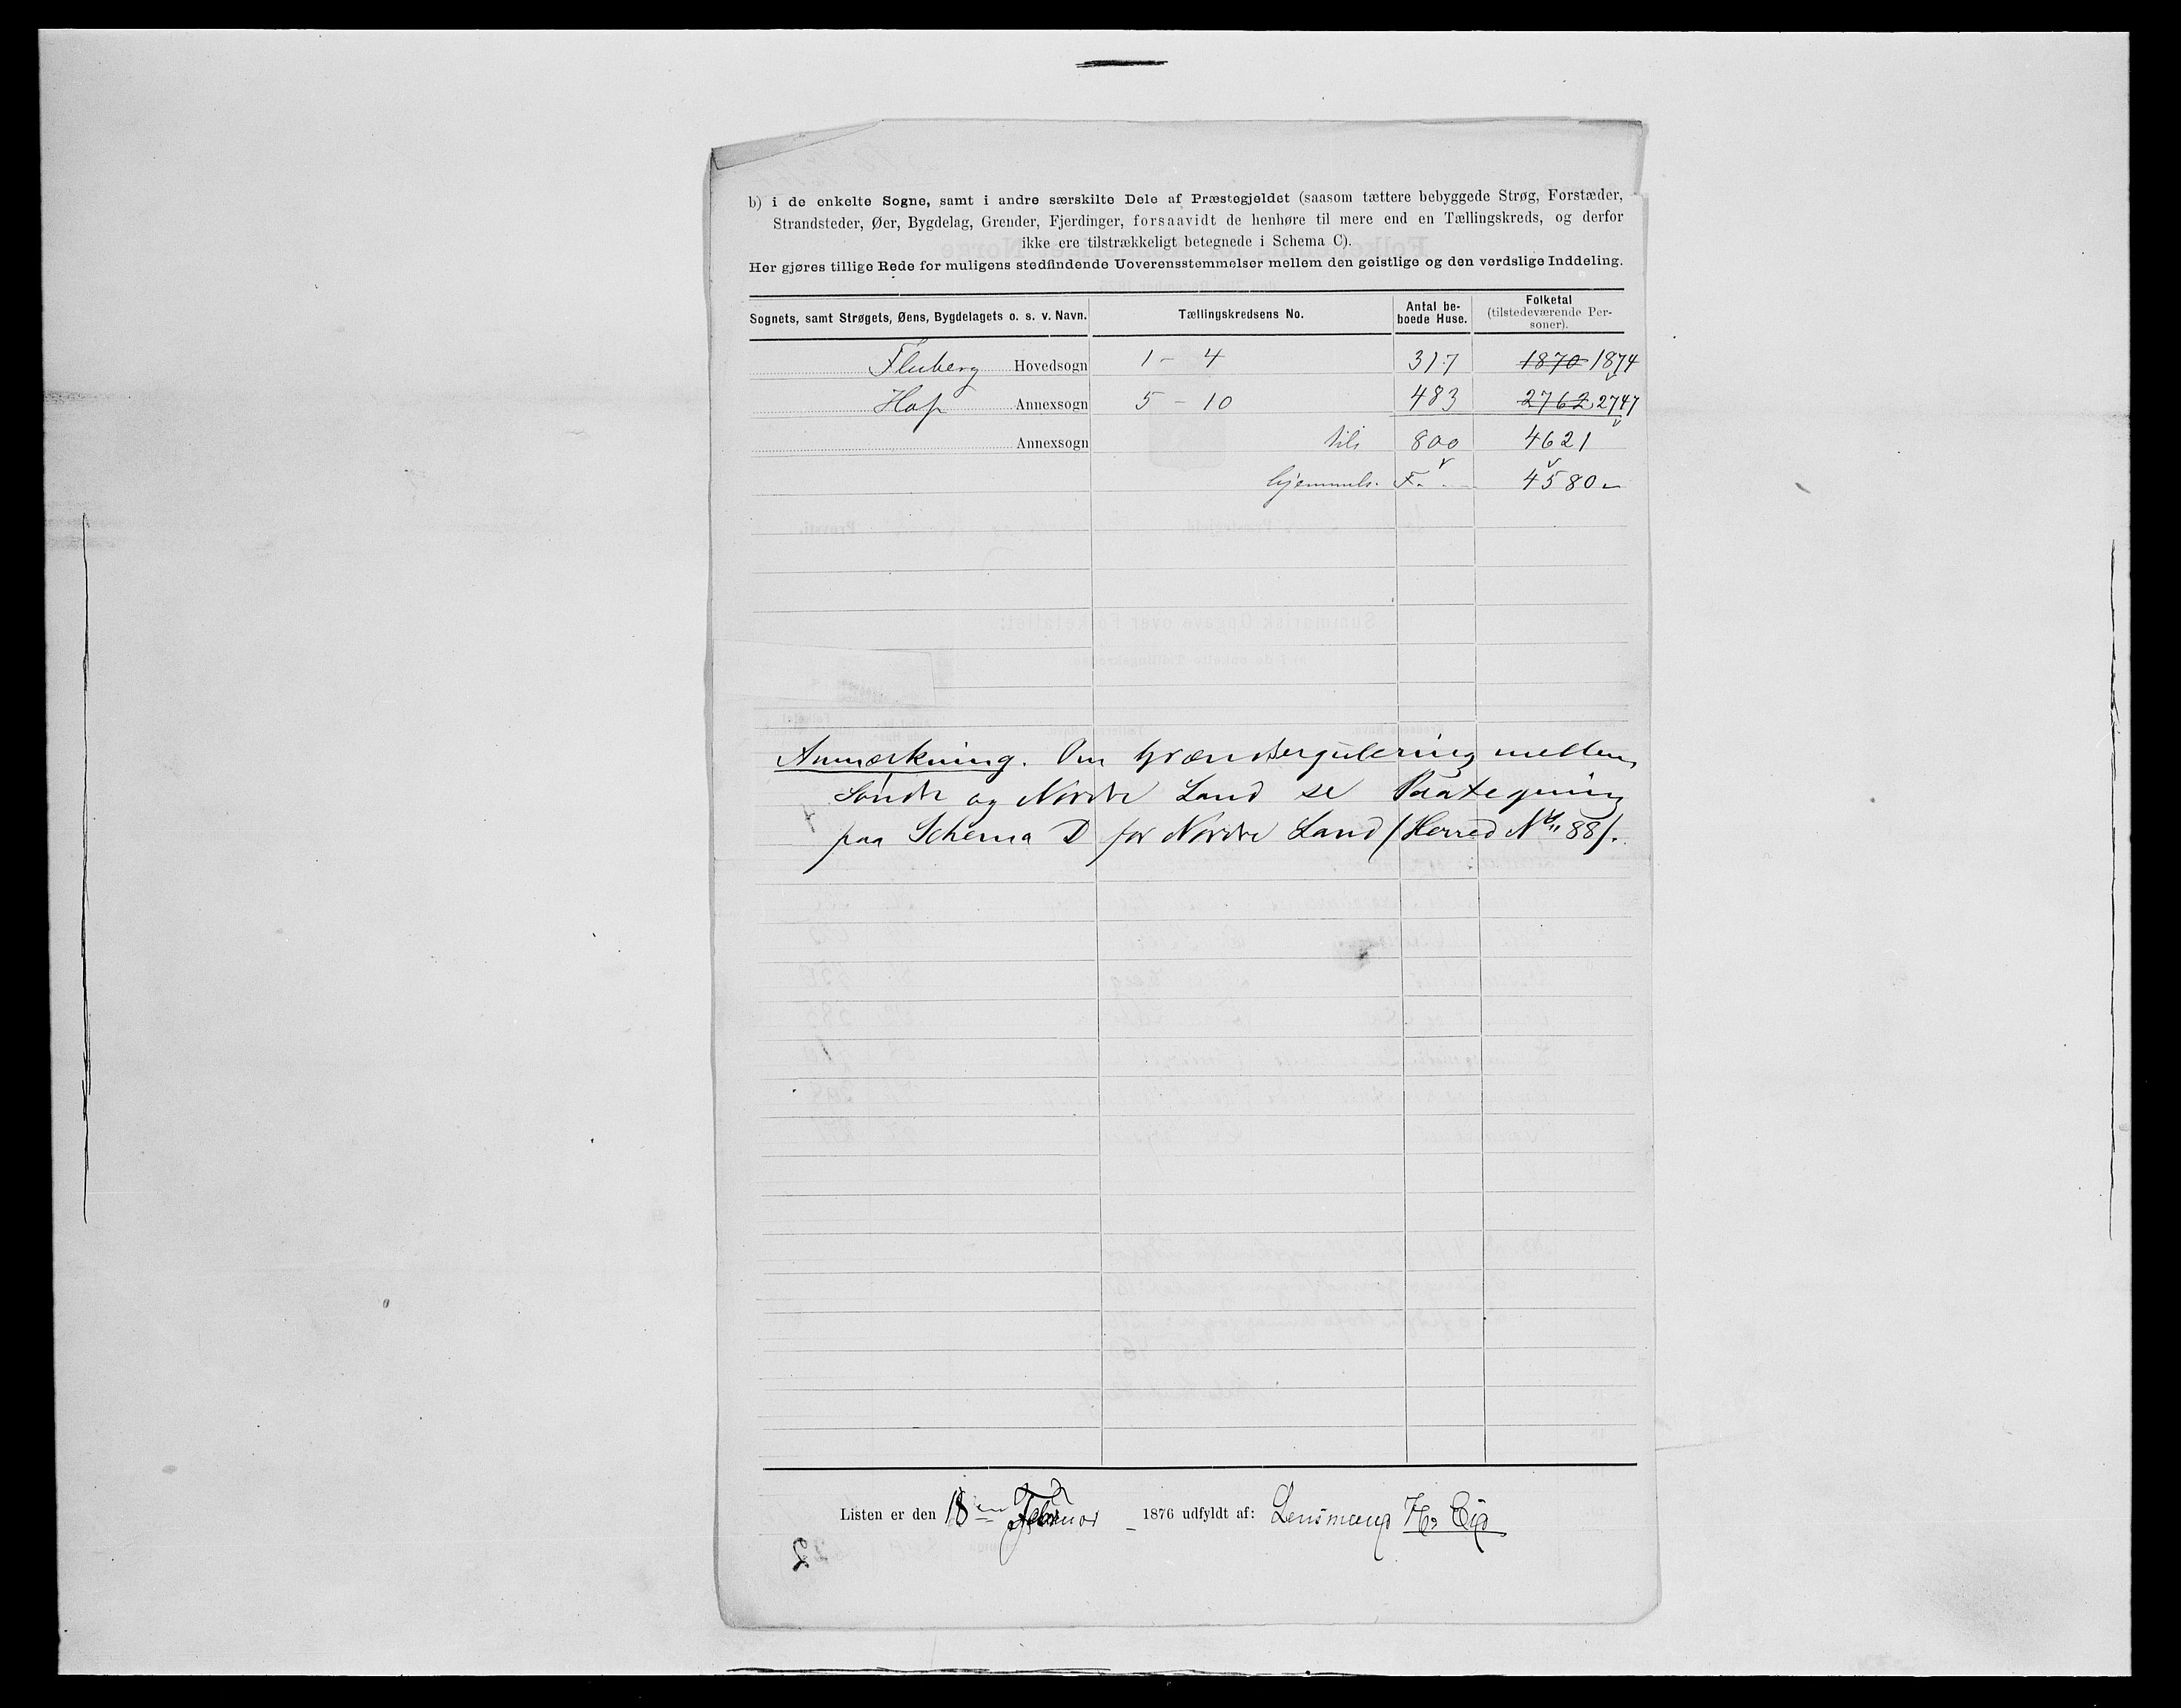 b) i de enkelte Sogne, samt i andre særskilte Dele af Præstegjeldet (saasom tættere bebyggede Strøg, Forstæder,
Strandsteder, Øer, Bygdelag, Grender, Fjerdinger, forsaavidt de henhøre til mere end en Tællingskreds, og derfor
ikke ere tilstrækkeligt betegnede i Schema C).
Her gjøres tillige Rede for muligens stedfindende Uoverensstemmelser mellem den geistlige og den verdslige Inddeling.
Sognets, samt Strøgets, Øens, Bygdelagets o. s. v. Navn. Tællingskredsens No. Antal be-
boede Huse. Folketal
(tilstedeværende Per-
soner).
Fluberg Hovedsogn 1 - 4 317 1870 1874
Hof Annexsogn 5 - 10 483 2762 2747
Annexsogn tils 800 4621
hjemmeh. F. 4580
Anmærkning. Om Grændseregulering mellem
Søndre og Nordre Land se Paategning
paa Schema D for Nordre Land (Herred No 88).
Listen er den 18en Februar 1876 udfyldt af: Lensmand
2